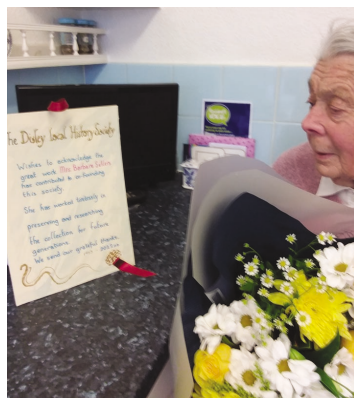 The Disley Local History Society
Wishes to acknowledge the
great work Mrs Barbara
has contributed to
this society.
She has worked tirelessly in
preserving and researching
the collection for future
generations.
We send our grateful thanks.